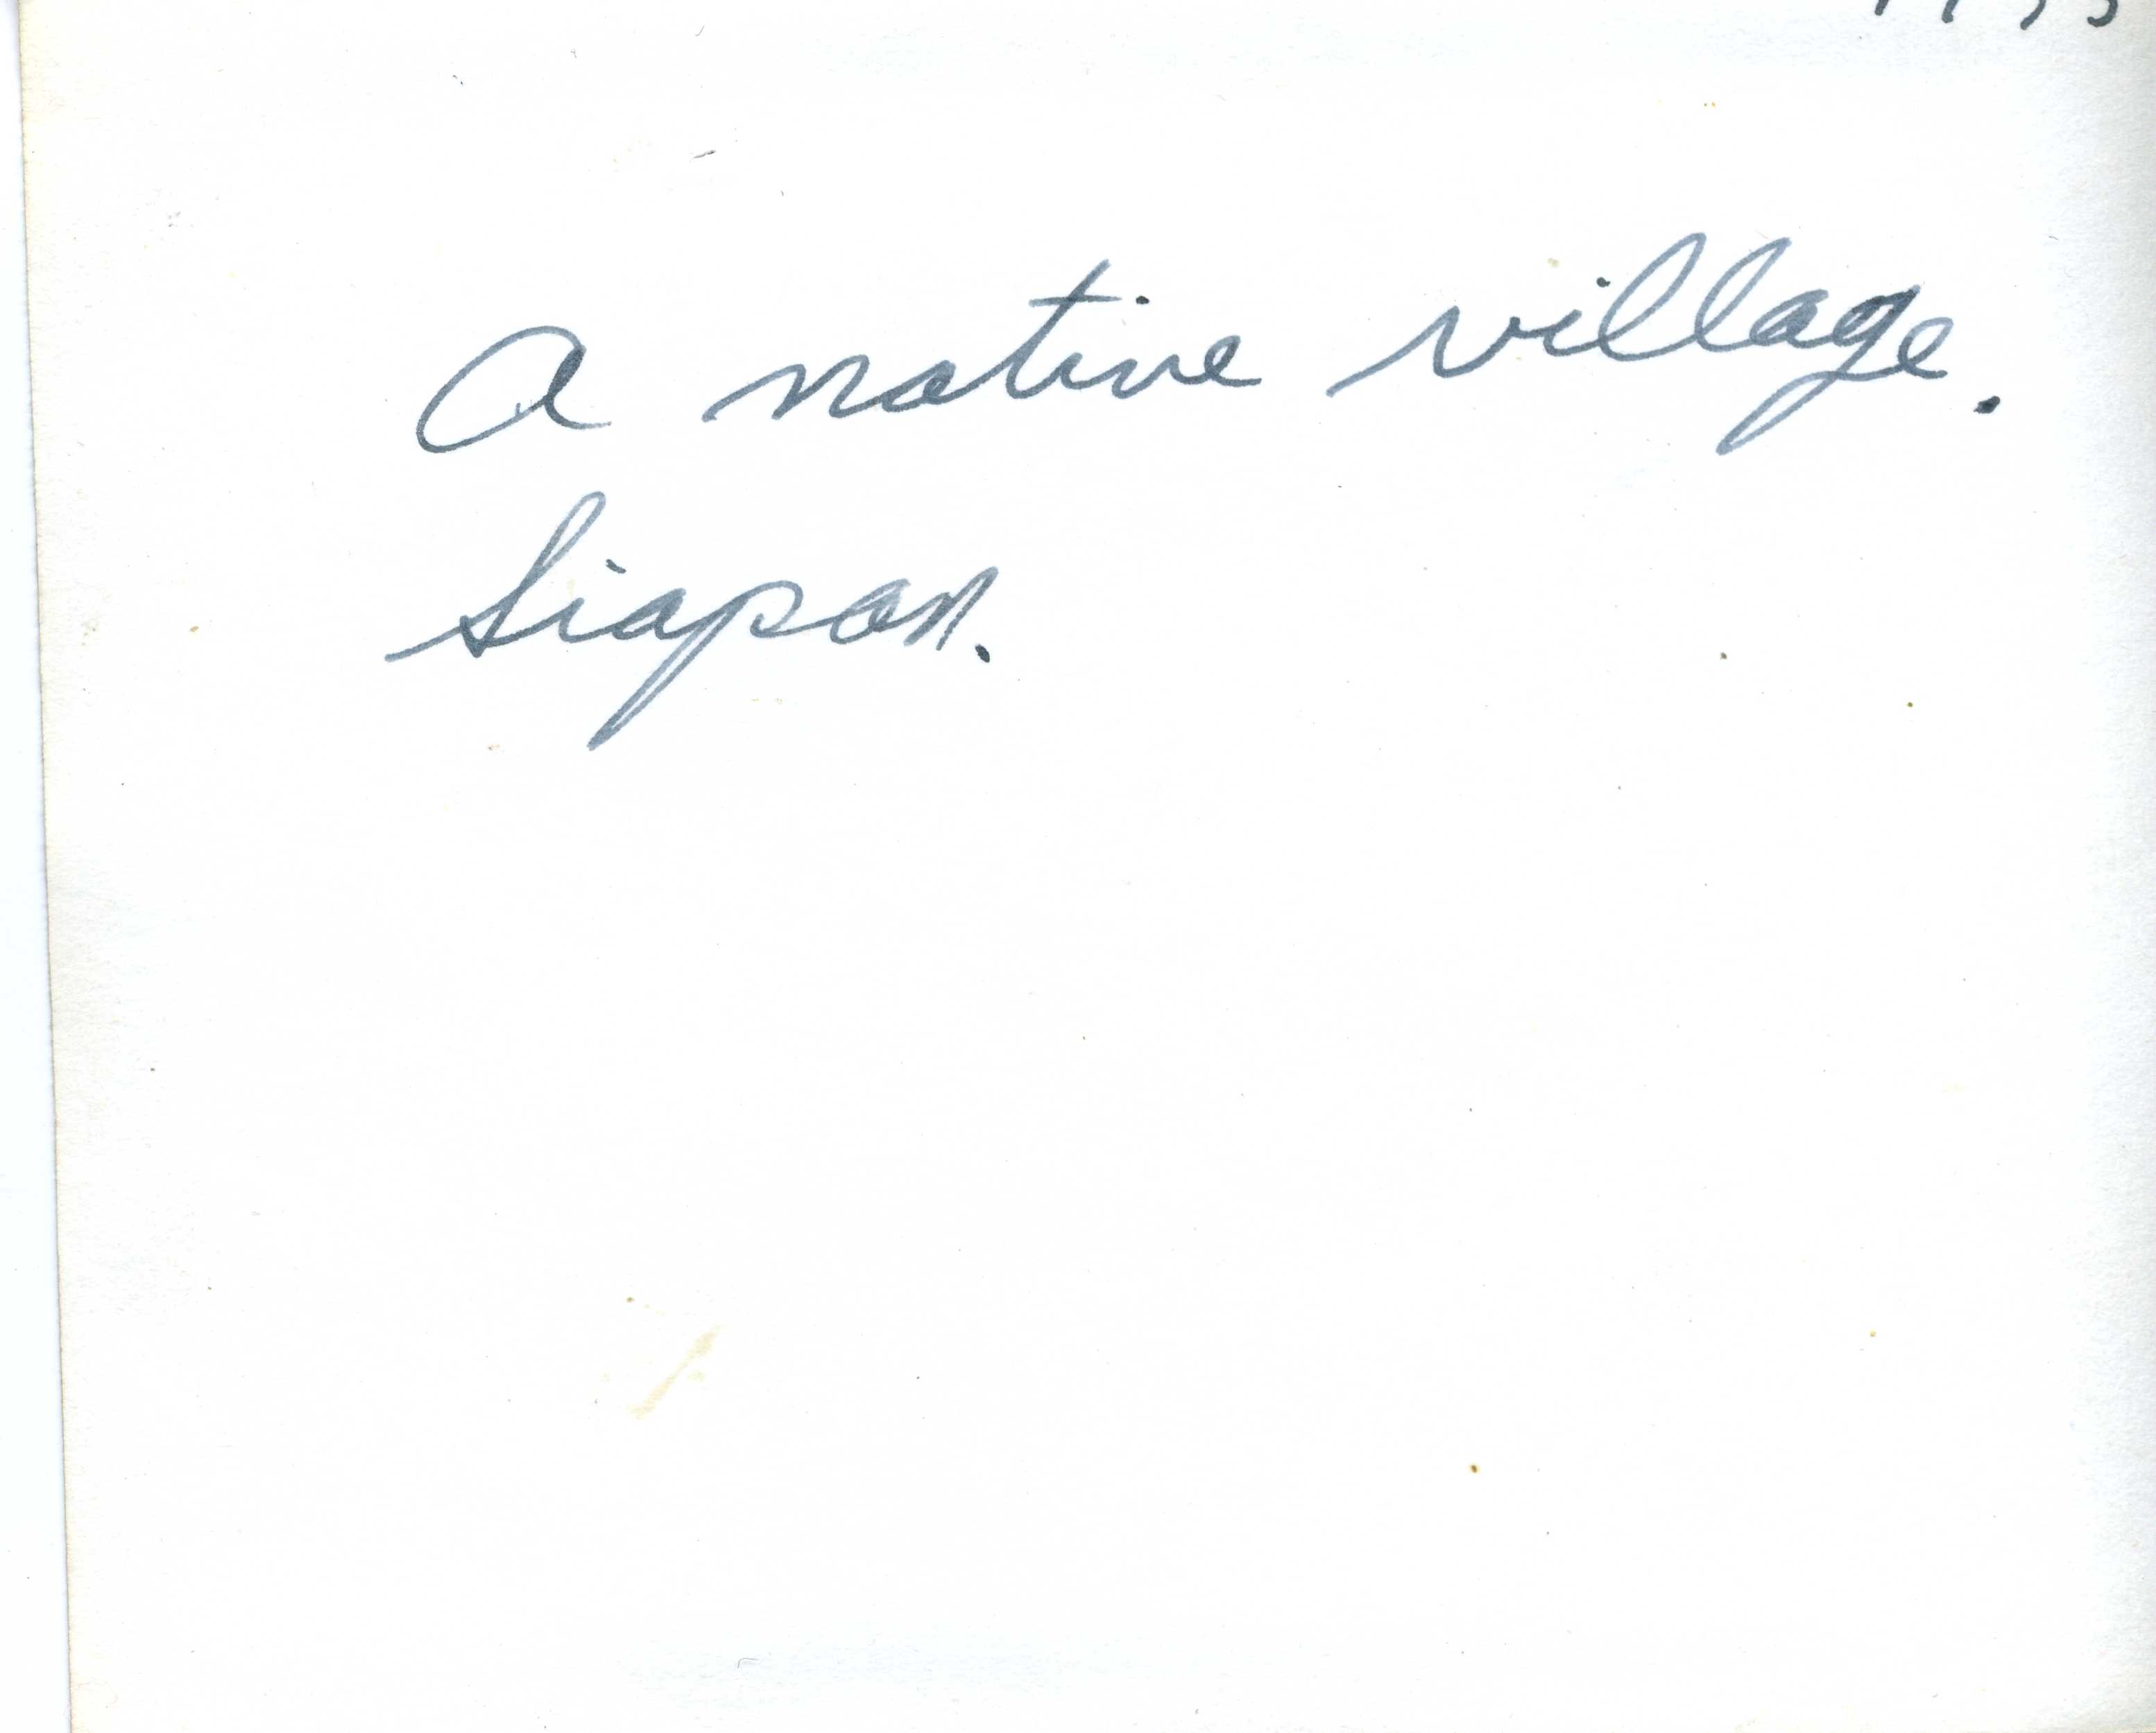 A native village.
Siapan.